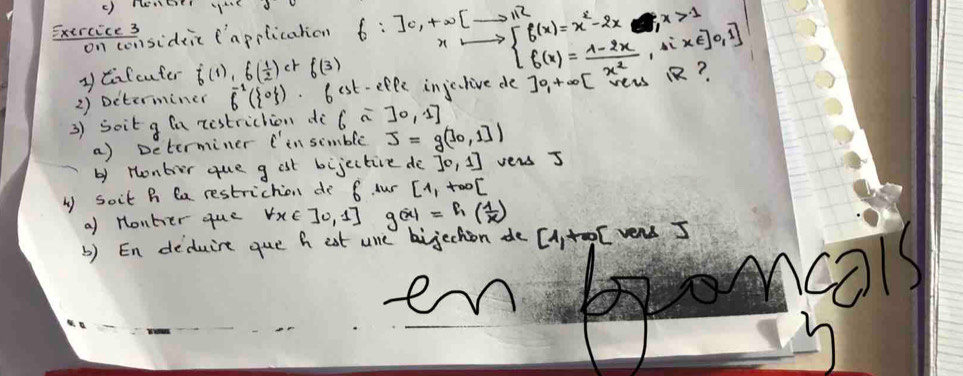 c) Montrer que
Exercice 3
On considère l'application f : ]0, +∞[ → IR
x ↦ { f(x) = x² - 2x , x > 1
f(x) = (1 - 2x)/x² , si x ∈ ]0, 1]
1) Calculer f(1), f(1/2) et f(3)
2) Déterminer f⁻¹({0}). f est-elle injective de ]0, +∞[ vers IR ?
3) Soit g la restriction de f à ]0, 1]
a) Determiner l'ensemble J = g(]0, 1])
b) Montrer que g est bijective de ]0, 1] vers J
4) Soit h la restriction de f sur [1, +∞[
a) Montrer que ∀x ∈ ]0, 1] g(x) = h(1/x)
b) En déduire que h est une bijection de [1, +∞[ vers J
en français